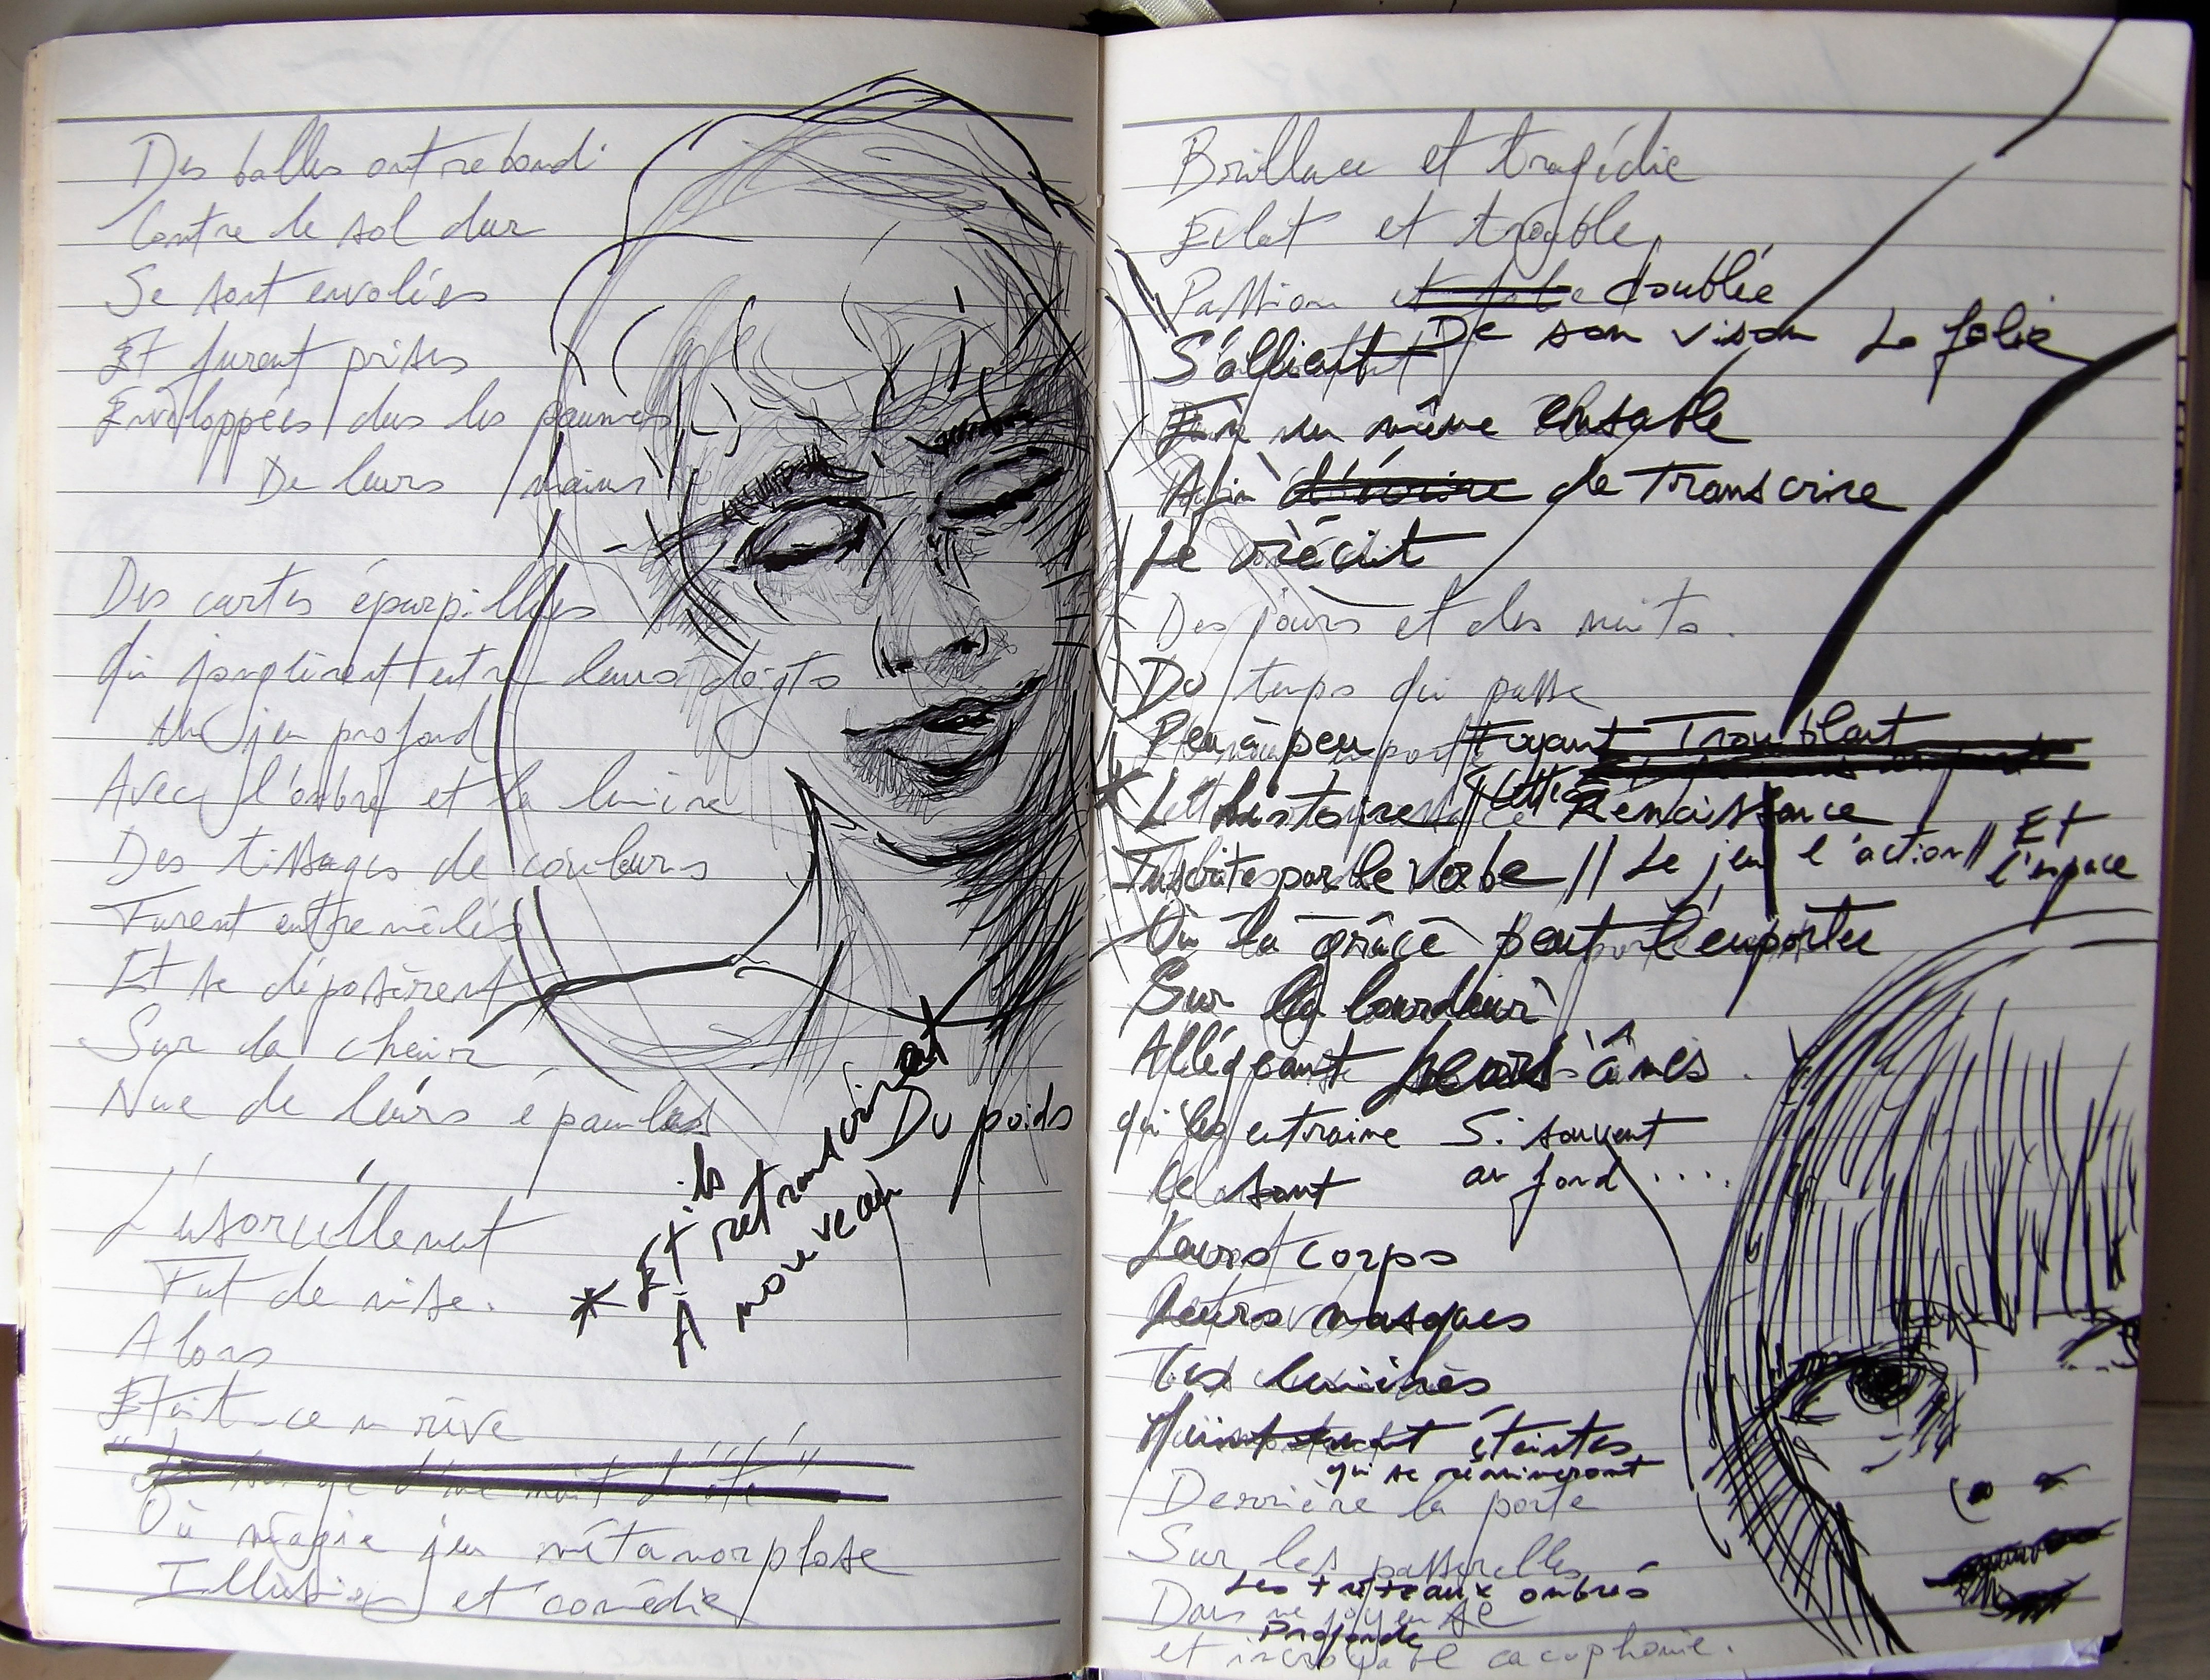 Des balles ont rebondi
Contre le sol dur
Se sont envolées
Et furent prises
Enveloppées dans les paumes
De leurs mains
Des cartes éparpillées
qui jonglèrent entre leurs doigts
Un jeu profond
Avec l'ombre et la lumière
Des tissages de couleurs
Furent entremêlés
Et se déposèrent
Sur la chair
Nue de leurs épaules
L'ensorcellement
Fut de mise.
Alors
Etait-ce un rêve
"Le songe d'une nuit d'été"
Où magie jeu métamorphose
Illusion et comédie
* Et ils
retrouvèrent
À nouveau
Du poids
Brillance et tragédie
Eclat et trouble
Passion et folie doublée
S'alliant De son vison La folie
En un même ensemble
Afin d'écrire de Transcrire
Le récit
Des jours et des nuits.
Du temps qui passe
Peu à peu Fuyant Troublant
* histoire Renaissance
Inscrites par le verbe // Le jeu l'action // Et l'espace
Où la grâce peut l'emporter
Sur la lourdeur
Allégeant leurs âmes
qui les entraine Si souvent
au fond ....
Ce sont
Leurs corps
Leurs masques
Les lumières
Maintenant éteintes
qui se ranimeront
Derrière la porte
Sur les passerelles
Les tréteaux ombrés
Dans
Profonde
et incroyable cacophonie.